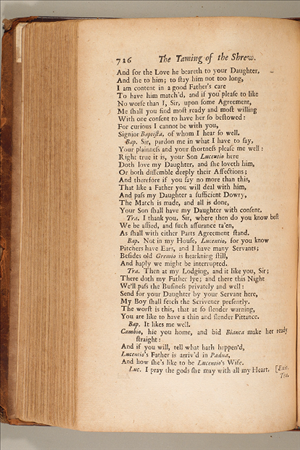 726 The Taming of the Shrew.
And for the Love he beareth to your Daughter,
And she to him; to stay him not too long,
I am content in a good Father's care
To have him match'd, and if you please to like
No worse than I, Sir, upon some Agreement,
Me shall you find most ready and most willing
With one consent to have her so bestowed:
For curious I cannot be with you,
Signior Baptista, of whom I hear so well.
Bap. Sir, pardon me in what I have to say,
Your plainness and your shortness please me well:
Right true it is, your Son Lucentio here
Doth love my Daughter, and she loveth him,
Or both dissemble deeply their Affections;
And therefore if you say no more than this,
That like a Father you will deal with him,
And pass my Daughter a sufficient Dowry,
The Match is made, and all is done,
Your Son shall have my Daughter with consent.
Tra. I thank you, Sir, where then do you know best
We be affied, and such assurance ta'en,
As shall with either Parts Agreement stand.
Bap. Not in my House, Lucentio, for you know
Pitchers have Ears, and I have many Servants;
Besides old Gremio is hearkning still,
And haply we might be interrupted.
Tra. Then at my Lodging, and it like you, Sir;
There doth my Father lye; and there this Night
We'll pass the Business privately and well:
Send for your Daughter by your Servant here,
My Boy shall fetch the Scrivener presently.
The worst is this, that at so slender warning,
You are like to have a thin and slender Pittance.
Bap. It likes me well.
Cambio, hie you home, and bid Bianca make her ready
straight:
And if you will, tell what hath happen'd,
Lucentio's Father is arriv'd in Padua,
And how she's like to be Lucentio's Wife.
Luc. I pray the gods she may with all my Heart. [Exit.
Tra.